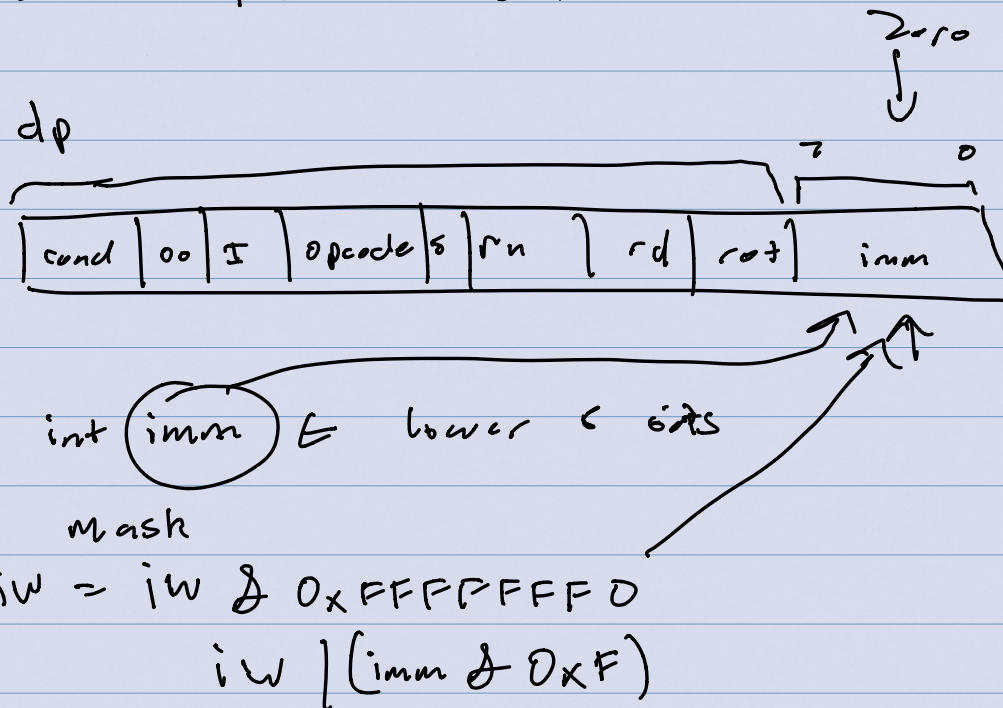 Zero
dp
7 0
cond 00 I opcode S rn rd rot imm
int imm ← lower bits
mask
iw = iw & 0xFFFFFFF0
iw | (imm & 0xF)